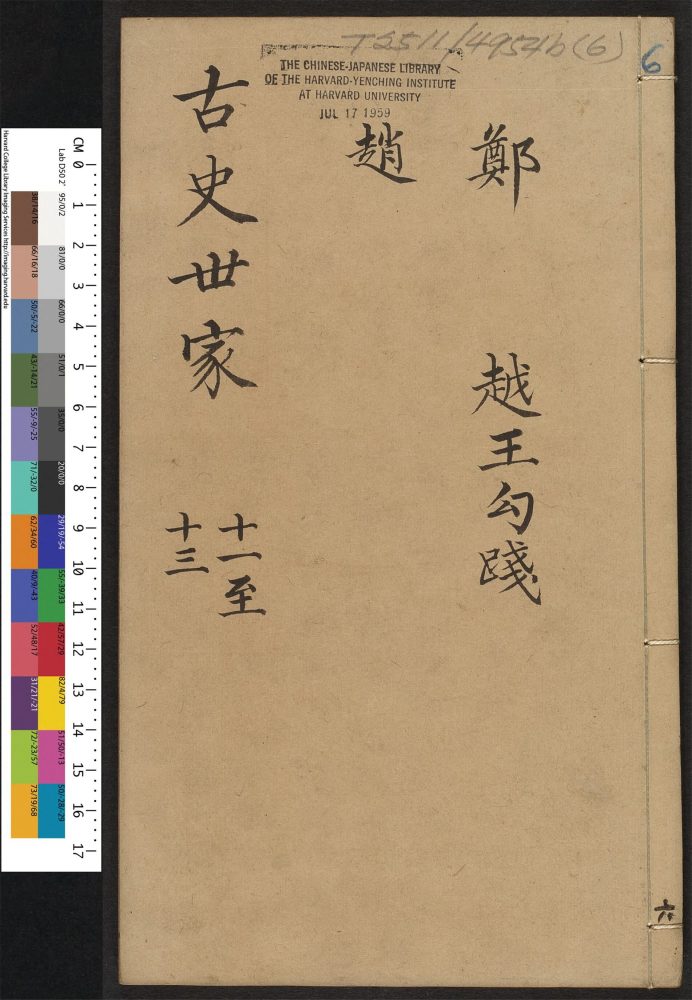 T2511/4954b(6)
6
THE CHINESE-JAPANESE LIBRARY
OF THE HARVARD-YENCHING INSTITUTE
AT HARVARD UNIVERSITY
JUL 17 1959
鄭 越王勾踐
趙
古史世家
十一至
十三
六
Harvard College Library Imaging Services http://imaging.harvard.edu
Lab D50 2°
CM 0 1 2 3 4 5 6 7 8 9 10 11 12 13 14 15 16 17
95/0/2
81/0/0
66/0/0
51/0/1
35/0/0
20/0/0
29/19/-54
55/-39/33
42/57/29
82/4/79
51/50/-13
50/-28/-29
38/14/16
66/16/18
50/-5/-22
43/-14/21
55/9/-25
71/-32/0
62/34/60
40/9/-43
52/48/17
31/21/-21
72/-23/57
73/19/68